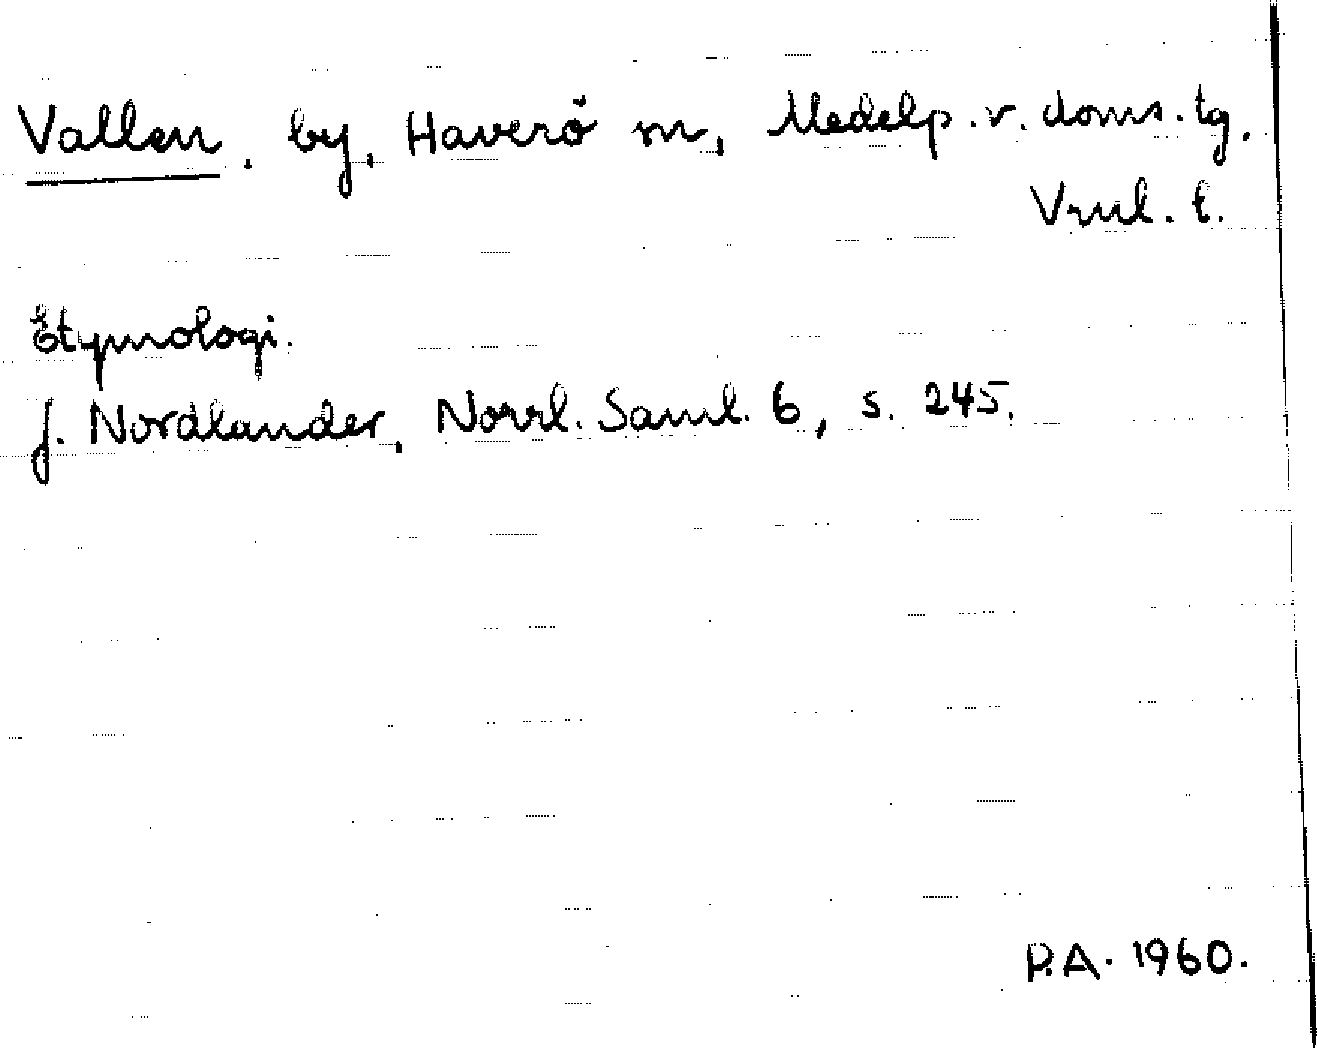 Vallen, by, Haverö sn, Medelp. v. doms. tg.
Vrnl. l.
Etymologi.
J. Nordlander, Norrl. Saml. 6, s. 245.
P.A. 1960.